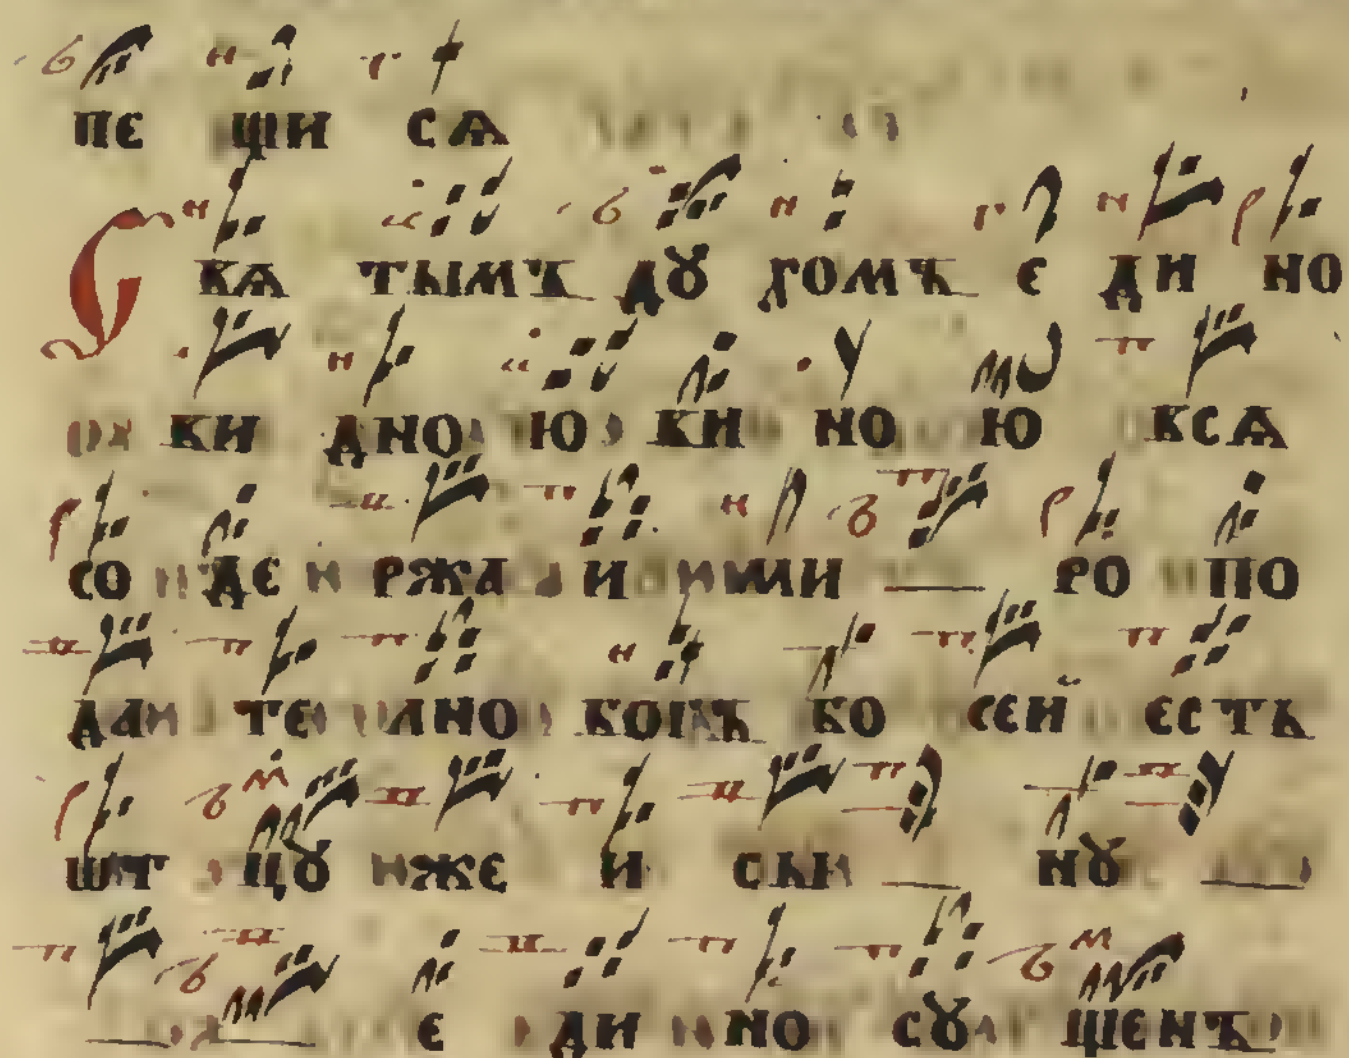 пе щи сѧ
Свѧ тымъ дꙋ хомъ є ди но
ви дно ю ви но ю всѧ
со де ржа и ми ро по
да те лно богъ бо сей єсть
ѿ цꙋ же и сы нꙋ
є ди но сꙋ щенъ